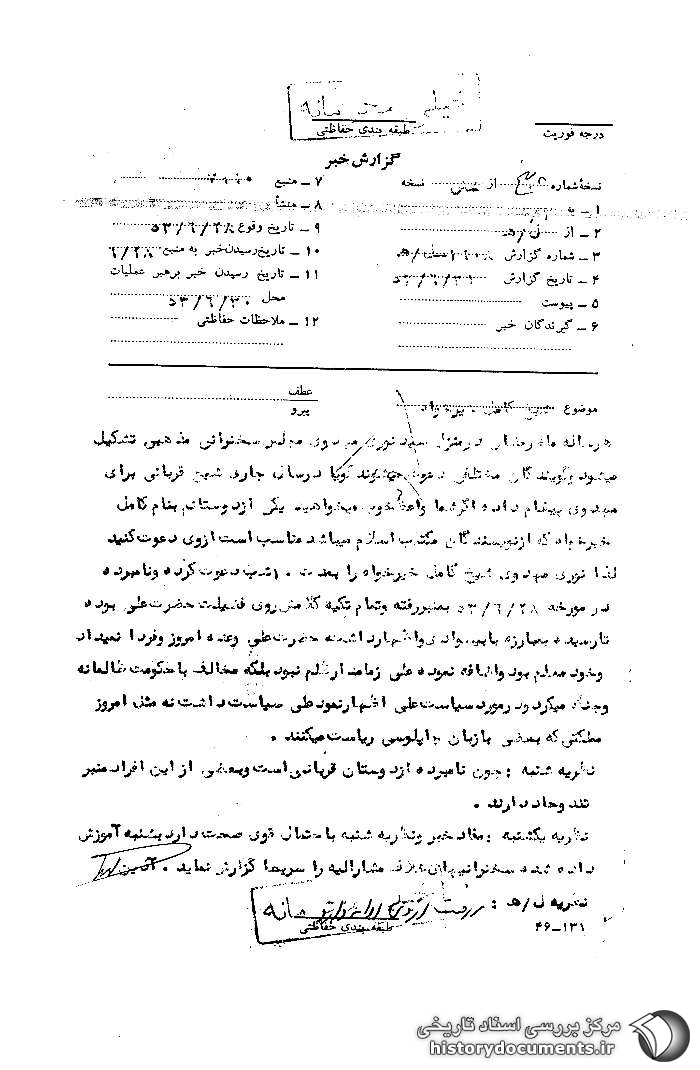 خیلی محرمانه
طبقه بندی حفاظتی
درجه فوریت
گزارش خبر
نسخهٔ شماره از نسخه
۱ ـ به
۲ ـ از
۳ ـ شماره گزارش
۴ ـ تاریخ گزارش
۵ ـ پیوست
۶ ـ گیرندگان خبر
۷ ـ منبع
۸ ـ منشأ
۹ ـ تاریخ وقوع ۵۳/۶/۲۸
۱۰ ـ تاریخ رسیدن خبر به منبع ۶/۲۸
۱۱ ـ تاریخ رسیدن خبر برهبر عملیات
محل ۵۳/۶/۳۰
۱۲ ـ ملاحظات حفاظتی
موضوع شیخ کامل خیرخواه
عطف
پیرو
هرساله ماه رمضان در منزل سید نوری مهدوی مجلس سخنرانی مذهبی تشکیل
میشود و گویندگان مختلفی دعوت میشوند گویا در سال جاری شیخ قربانی برای
مهدوی پیغام داده اگر شما واعظ خوب میخواهید یکی از دوستانم بنام کامل
خیرخواه که از نویسندگان مکتب اسلام میباشد مناسب است از وی دعوت کنید
لذا نوری مهدوی شیخ کامل خیرخواه را بمدت ۱۰ شب دعوت کرده و نامبرده
در مورخه ۵۳/۶/۲۸ بمنبر رفته و تمام تکیه کلامش روی فضیلت حضرت علی بوده
تا رسیده بمبارزه با بیسوادی و اظهار داشته حضرت علی وعده امروز و فردا نمیداد
و خود معلم بود و اضافه نموده علی زمامدار ظلم نبود بلکه مخالف با حکومت ظالمانه
و جنگ میکرد و در مورد سیاست علی اظهار نمود علی سیاست داشت نه مثل امروز
مملکتی که بعضی با زبان چاپلوسی ریاست میکنند .
نظریه شنبه : چون نامبرده از دوستان قربانی است و بعضی از این افراد منبر
تند و حاد دارند .
نظریه یکشنبه : مفاد خبر و نظریه شنبه باحتمال قوی صحت دارد بشنبه آموزش
داده شده سخنرانیهای خلاف مشارالیه را سریعا گزارش نماید .
نظریه ل/ه :
خیلی محرمانه
طبقه بندی حفاظتی
۴۶-۱۳۱
مرکز بررسی اسناد تاریخی
historydocuments.ir